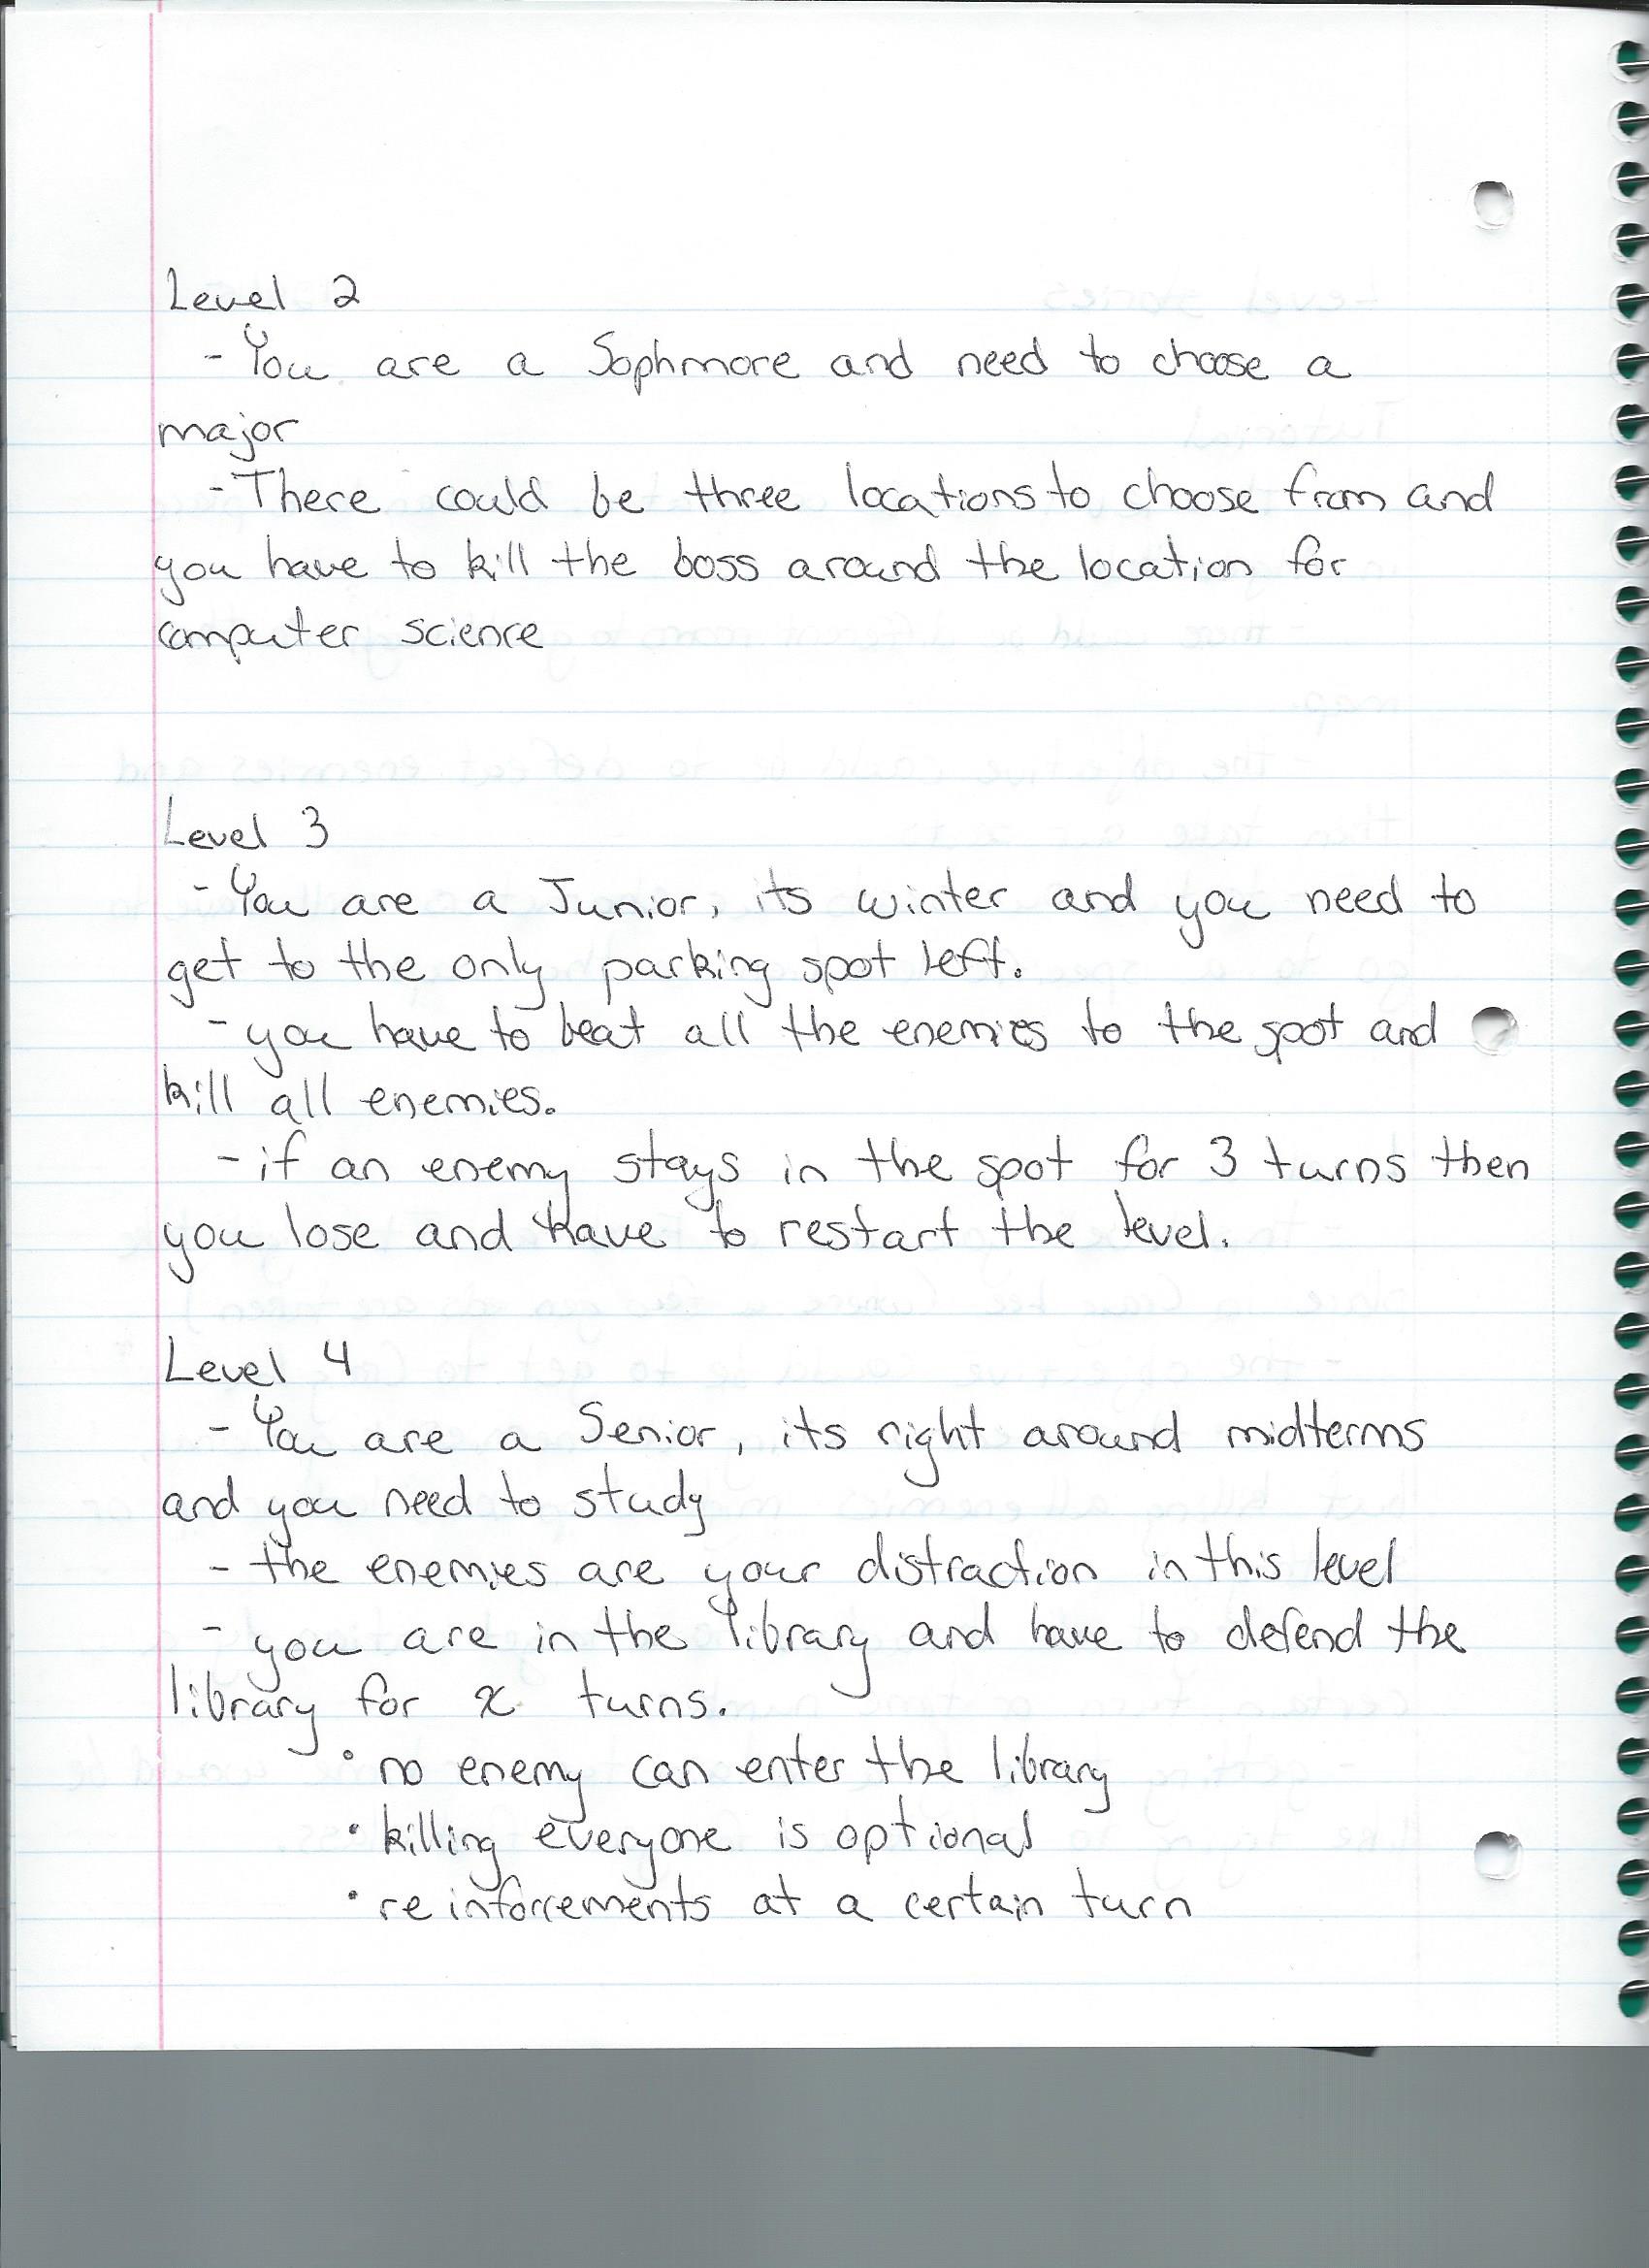 Level 2
- You are a Sophmore and need to choose a
major
- There could be three locations to choose from and
you have to kill the boss around the location for
computer science
Level 3
- You are a Junior, its winter and you need to
get to the only parking spot left.
- you have to beat all the enemies to the spot and
kill all enemies.
- if an enemy stays in the spot for 3 turns then
you lose and have to restart the level.
Level 4
- You are a Senior, its right around midterms
and you need to study
- the enemies are your distraction in this level
- you are in the library and have to defend the
library for x turns.
• no enemy can enter the library
• killing everyone is optional
• reinforcements at a certain turn